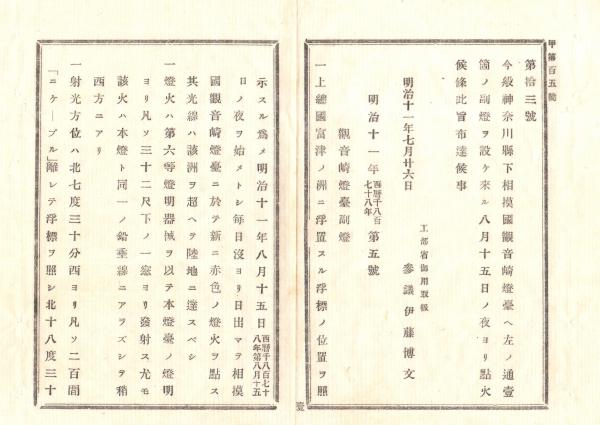 甲第百五號
第拾三號
今般神奈川縣下相模國觀音崎燈臺ヘ左ノ通壹
箇ノ副燈ヲ設ケ來ル八月十五日ノ夜ヨリ點火
候條此旨布達候事
明治十一年七月廿六日
工部省御用取扱
參議伊藤博文
明治十一年西曆千八百七十八年第五號
觀音崎燈臺副燈
一上總國富津ノ洲ニ浮置スル浮標ノ位置ヲ照
示スル爲メ明治十一年八月十五日西曆千八百七十八年第八月十五
日ノ夜ヲ始メトシ每日沒ヨリ日出マテ相模
國觀音崎燈臺ニ於テ新ニ赤色ノ燈火ヲ點ス
其光線ハ該洲ヲ超ヘテ陸地ニ達スベシ
一燈火ハ第六等燈明器械ヲ以テ本燈臺ノ燈明
ヨリ凡ソ三十二尺下ノ一窓ヨリ發射ス尤モ
該火ハ本燈ト同一ノ鉛垂線ニアラズシテ稍
西方ニアリ
一射光方位ハ北七度三十分西ヨリ凡ソ二百間
「ニケーブル」離レテ浮標ヲ照シ北十八度三十
壹